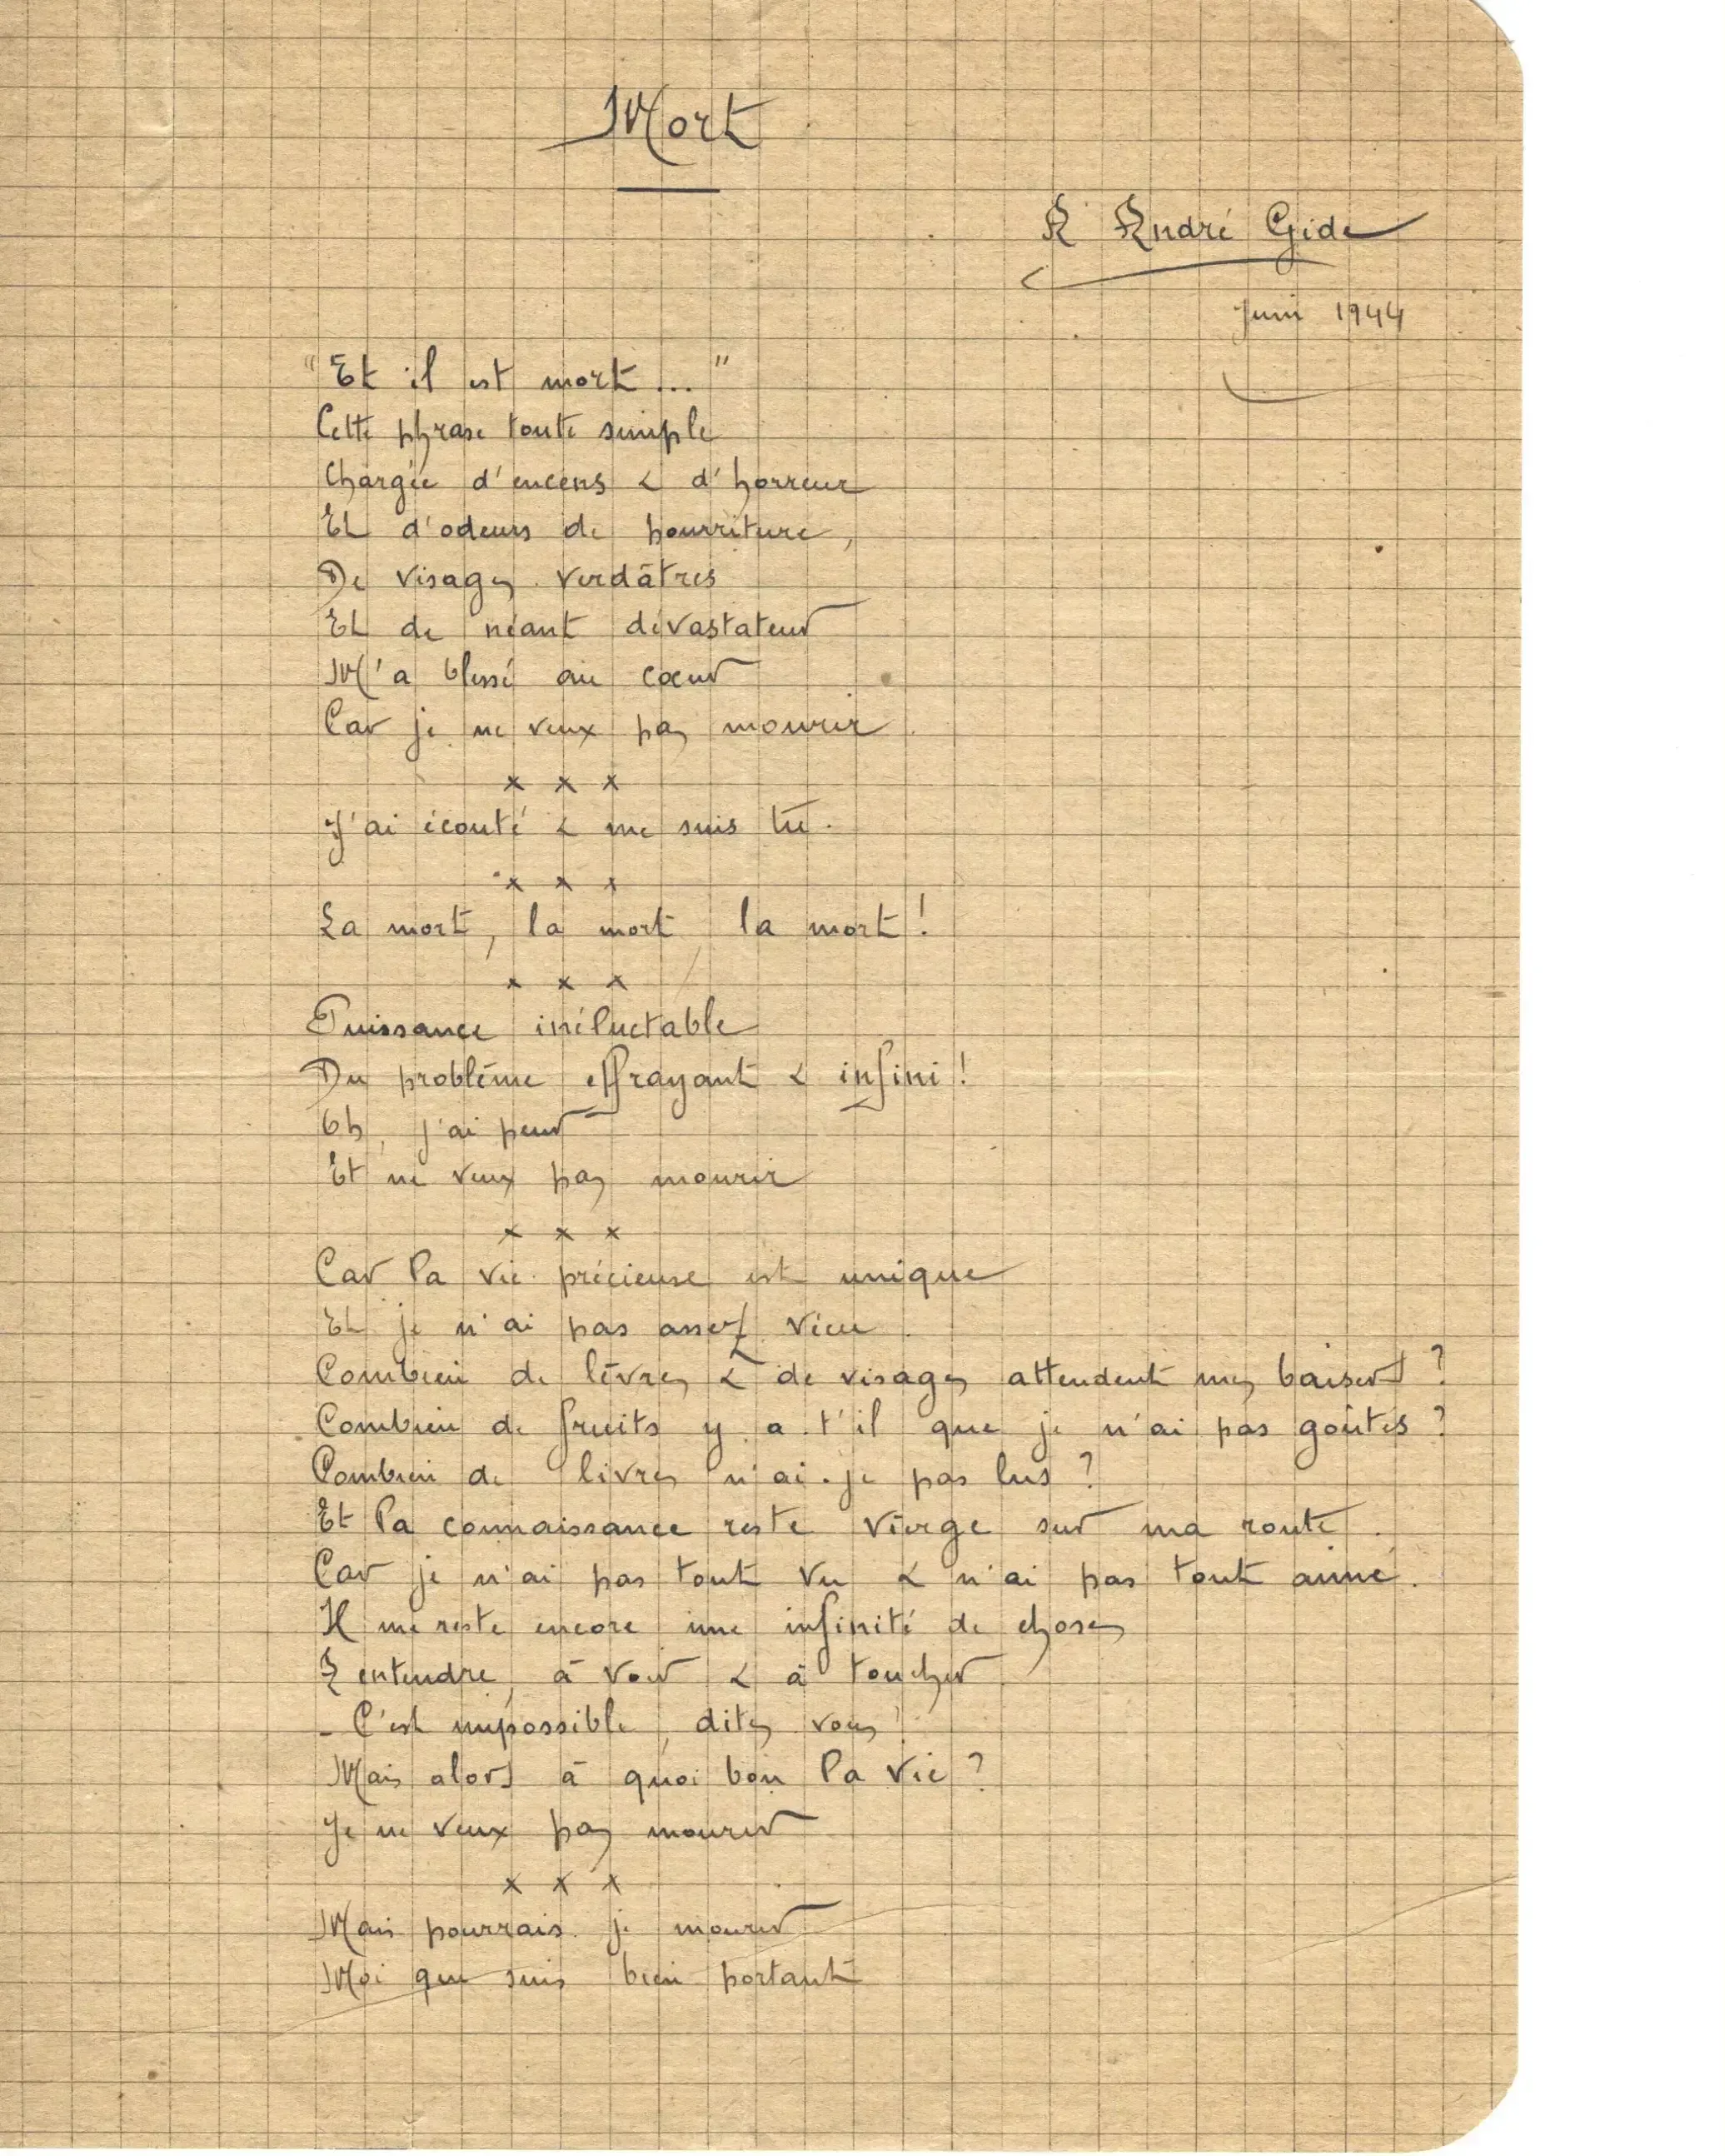 Mort
A André Gide
Juin 1944
"Et il est mort..."
Cette phrase toute simple
Chargée d'encens & d'horreur
Et d'odeurs de pourriture,
De visages verdâtres
Et de néant dévastateur
M'a blessé au cœur
Car je ne veux pas mourir.
x x x
J'ai écouté & me suis tû.
x x x
La mort, la mort, la mort!
x x x
Puissance inéluctable
Du problème effrayant & infini!
Oh, j'ai peur
Et ne veux pas mourir
x x x
Car la vie précieuse est unique
Et je n'ai pas assez vécu.
Combien de lèvres & de visages attendent mes baisers?
Combien de fruits y a t'il que je n'ai pas goûtés?
Combien de livres n'ai-je pas lus?
Et la connaissance reste vierge sur ma route.
Car je n'ai pas tout vu & n'ai pas tout aimé.
Il me reste encore une infinité de choses
A entendre, à voir & à toucher
- C'est impossible, dites vous!
Mais alors à quoi bon la vie?
Je ne veux pas mourir
x x x
Mais pourrais-je mourir
Moi qui suis bien portant